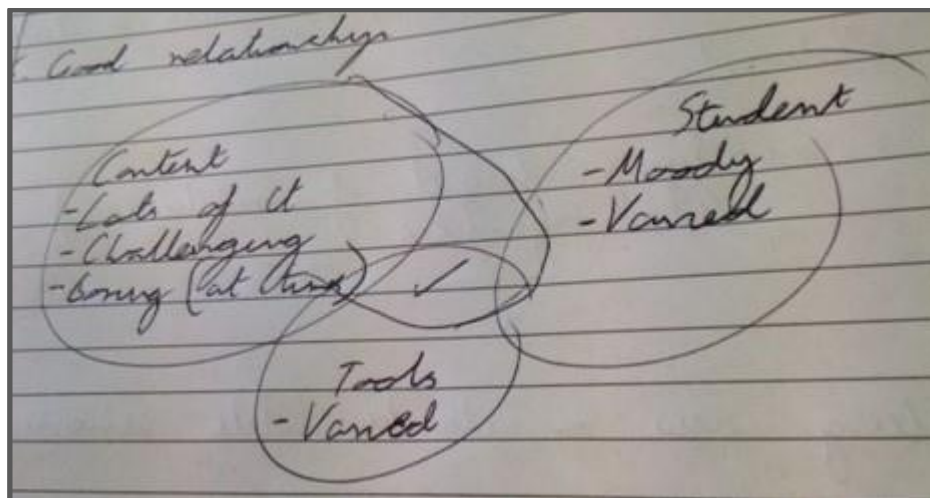 Good relationships
Content
- Lots of it
- Challenging
- Boring (at times)
Student
- Moody
- Varied
Tools
- Varied